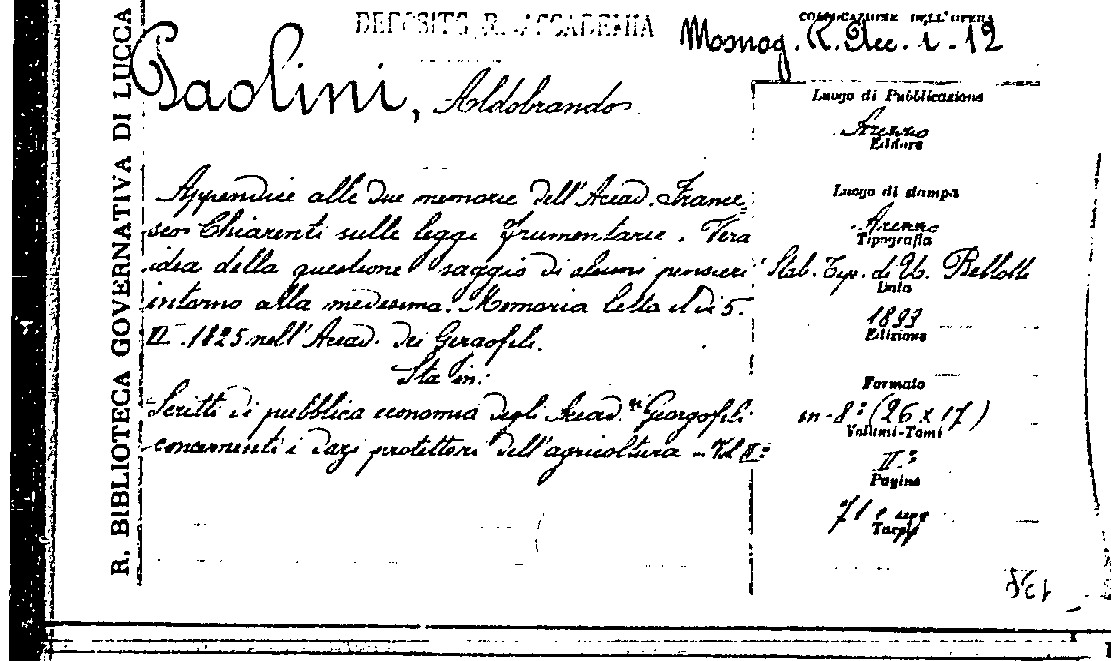 R. BIBLIOTECA GOVERNATIVA DI LUCCA
DEPOSITO R. ACCADEMIA
COLLOCAZIONE DELL'OPERA
Monog. R. Acc. 1-12
Paolini, Aldobrando
Appendice alle due memorie dell'Accad. France=
sco Chiarenti sulle leggi frumentarie. Vera
idea della questione saggio di alcuni pensieri
intorno alla medesima. Memoria letta il dì 5.
II. 1825 nell'Accad. dei Georgofili.
Sta in:
Scritti di pubblica economia degli Accad.ci Georgofili
concernenti i dazi protettori dell'agricoltura - Vol II°
Luogo di Pubblicazione
Arezzo
Editore
Luogo di stampa
Arezzo
Tipografia
Stab. Tip. di U. Bellotti
Data
1899
Edizione
Formato
in-8° (26 x 17)
Volumi-Tomi
II.°
Pagine
71 e segg
Tavole